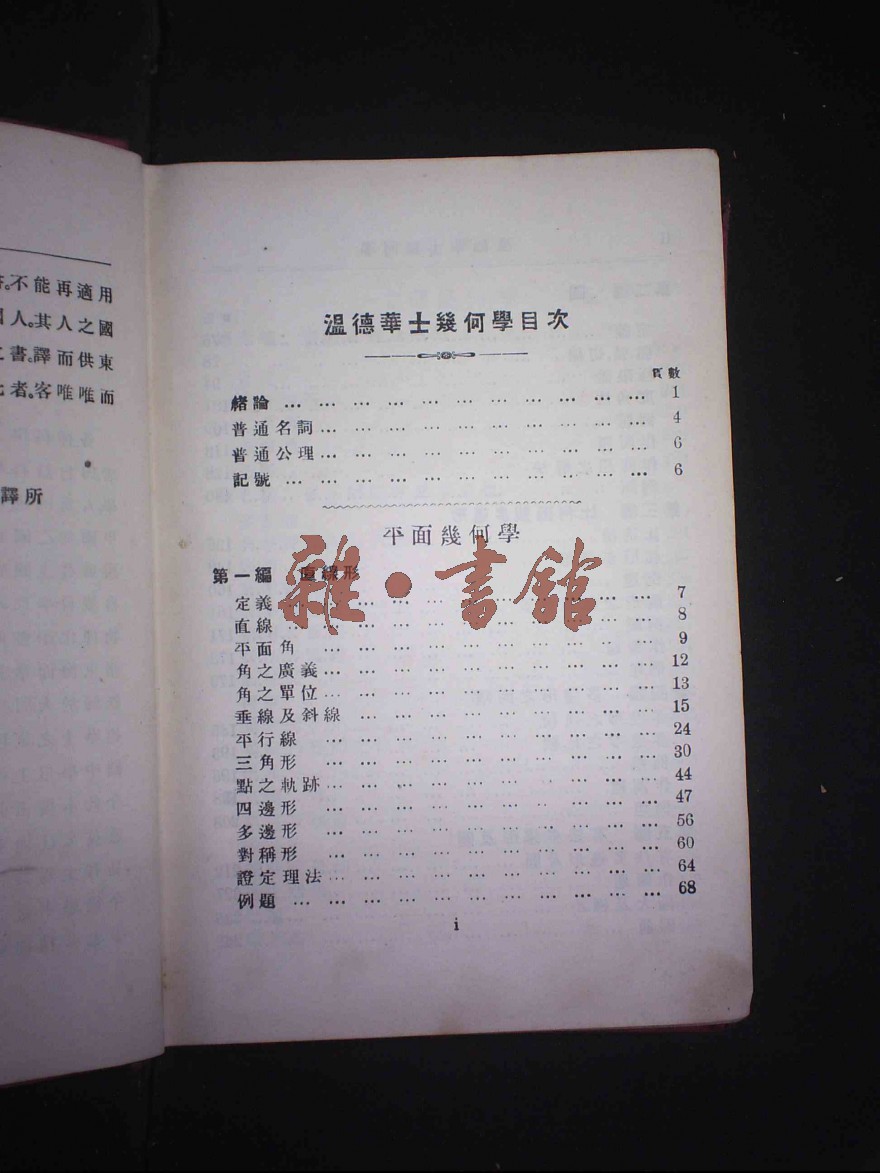 不能再適用
人。其人之國
書。譯而供東
者。客唯唯而
譯所
溫德華士幾何學目次
頁數
緒論 … … … … … … … … … … … 1
普通名詞 … … … … … … … … … … 4
普通公理 … … … … … … … … … … 6
記號 … … … … … … … … … … … 6
平面幾何學
第一編 直線形
定義 … … … … … … … … … … 7
直線 … … … … … … … … … … 8
平面角 … … … … … … … … … … 9
角之廣義 … … … … … … … … … 12
角之單位 … … … … … … … … … 13
垂線及斜線 … … … … … … … … … 15
平行線 … … … … … … … … … … 24
三角形 … … … … … … … … … … 30
點之軌跡 … … … … … … … … … 44
四邊形 … … … … … … … … … … 47
多邊形 … … … … … … … … … … 56
對稱形 … … … … … … … … … … 60
證定理法 … … … … … … … … … 64
例題 … … … … … … … … … … … 68
i
雜·書館